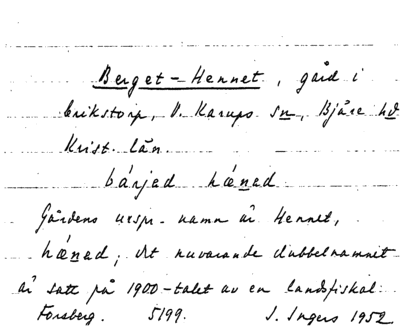 Berget-Hennet, gård i
Erikstorp, V. Karups sn, Bjäre hd
Krist. län.
bárjed hæned
Gårdens urspr. namn är Hennet,
hæned; det nuvarande dubbelnamnet
är satt på 1900-talet av en landsfiskal.
Forsberg. 5199. I. Ingers 1952